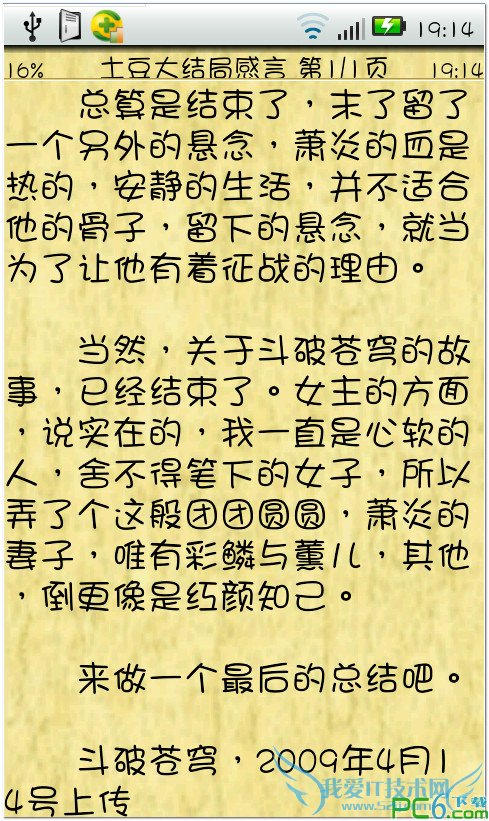 19:14
16% 土豆大结局感言 第1/1页 19:14
总算是结束了，末了留了
一个另外的悬念，萧炎的血是
热的，安静的生活，并不适合
他的骨子，留下的悬念，就当
为了让他有着征战的理由。
当然，关于斗破苍穹的故
事，已经结束了。女主的方面
，说实在的，我一直是心软的
人，舍不得笔下的女子，所以
弄了个这般团团圆圆，萧炎的
妻子，唯有彩鳞与薰儿，其他
，倒更像是红颜知己。
来做一个最后的总结吧。
斗破苍穹，2009年4月1
4号上传
我爱IT技术网
PC6下载
.com